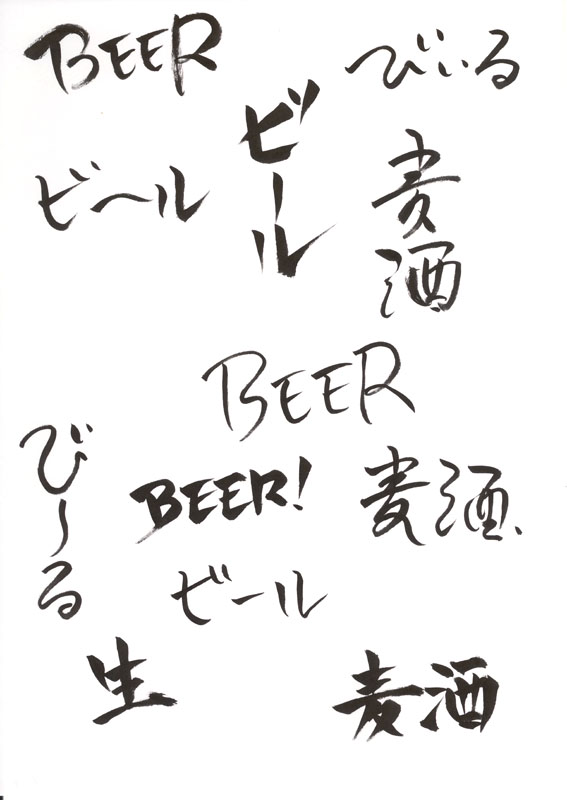 BEER
びぃる
ビール
ビ〜ル
麦酒
BEER
び〜る
BEER!
麦酒、
ビール
生
麦酒